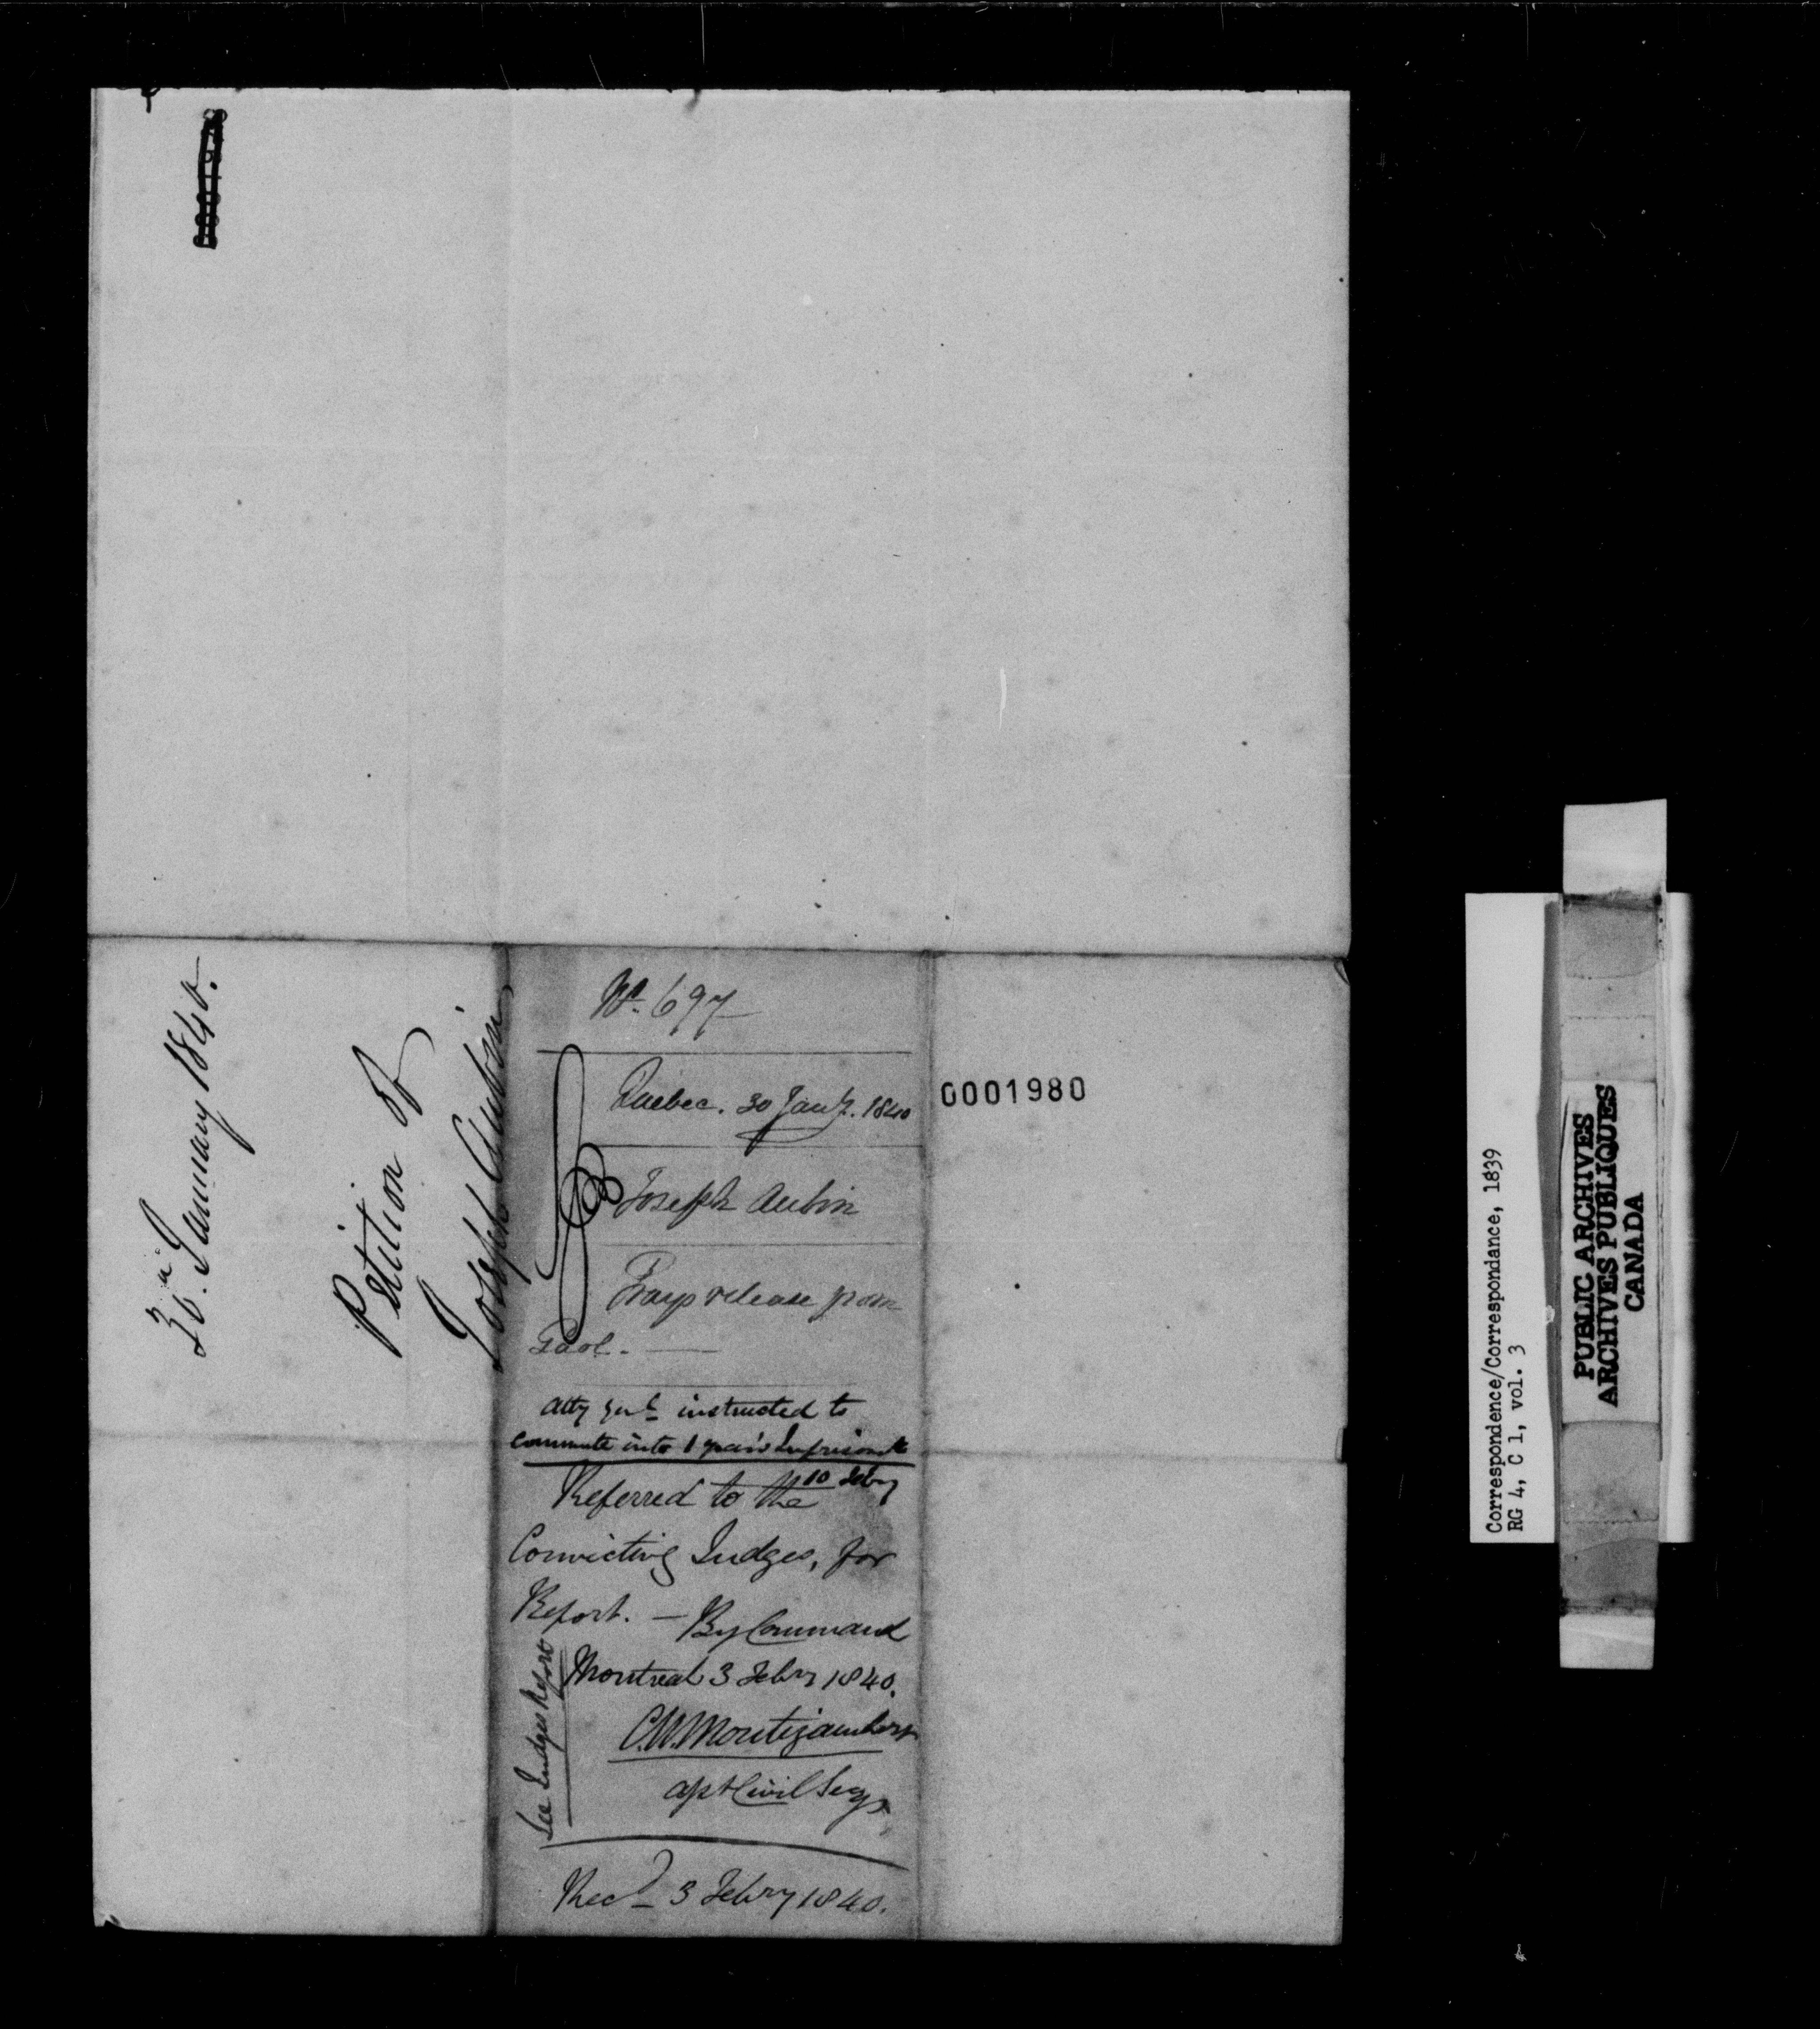 30 January 1840.
Petition of
Joseph Aubin
No. 697
Quebec. 30 Jany. 1840
0001980
Joseph Aubin
Prays release from
Gaol. —
Atty Genl instructed to
commute into 1 year's Imprisont
10 Feby
Referred to the
Convicting Judges, for
Report. — By Command
Montreal 3 Febry 1840.
C.W. Montizambert
Civil Secy
See Judges Report
Recd 3 Febry 1840.
Correspondence/Correspondance, 1839
RG 4, C 1, vol. 3
PUBLIC ARCHIVES
ARCHIVES PUBLIQUES
CANADA